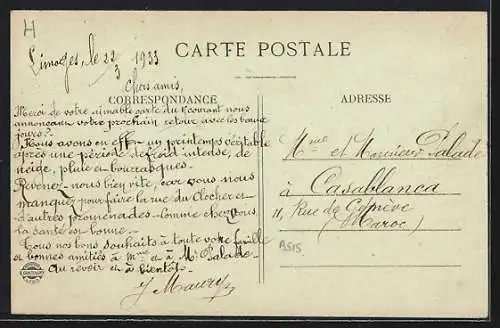 H
CARTE POSTALE
Limoges, le 22/3 1933
Chers amis,
CORRESPONDANCE
ADRESSE
Merci de votre aimable carte du courant nous
annonçant votre prochain retour avec les beaux
jours?.
Nous avons en eff. un printemps véritable
après une période de froid intense, de
neige, pluie et bourrasques.
Revenez-nous bien vite, car vous nous
manquez pour faire la rue du Clocher et
d'autres promenades. Comme chez vous
la santé est bonne.
Tous nos bons souhaits à toute votre famille
et bonnes amitiés à Mme et à Mr Palade.
Au revoir et à bientôt.
J Maury
Mme et Monsieur Palade
à Casablanca
11, Rue de Genève
(Maroc)